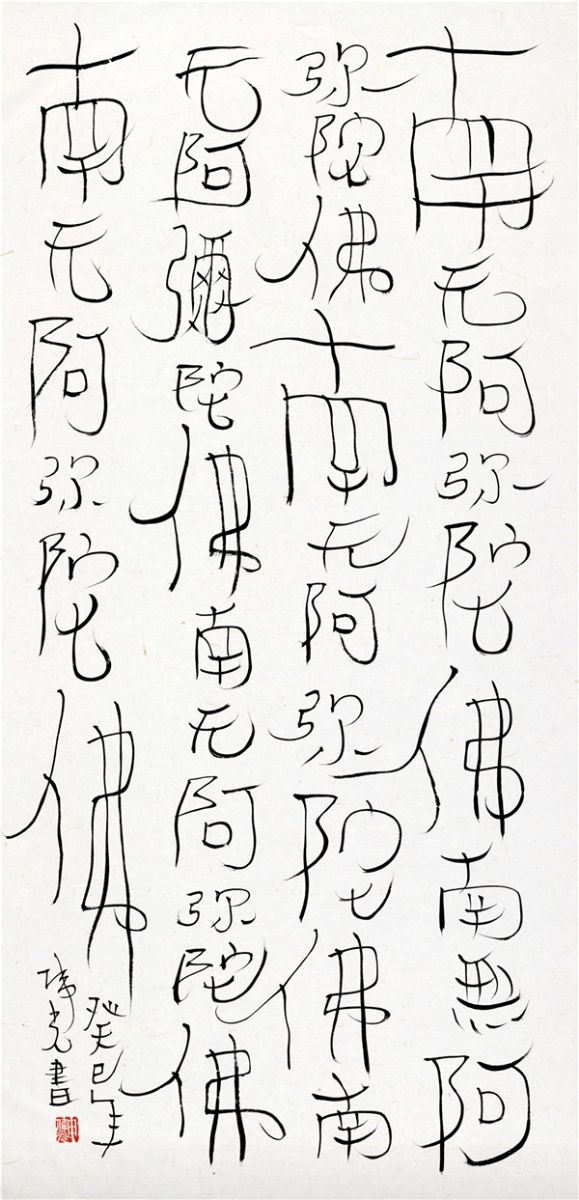 南无阿弥陀佛南無阿
弥陀佛南无阿弥陀佛南
无阿彌陀佛南无阿弥陀佛
南无阿弥陀佛
癸巳年
光書